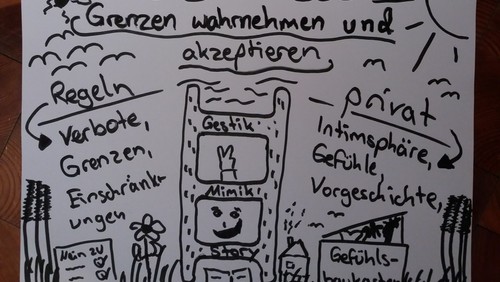 Grenzen wahrnehmen und
akzeptieren
Regeln
Verbote,
Grenzen,
Einschränk-
ungen
Gestik
Mimik
Story
privat
Intimsphäre,
Gefühle,
Vorgeschichte,
Nein zu
Gefühls-
baukasten